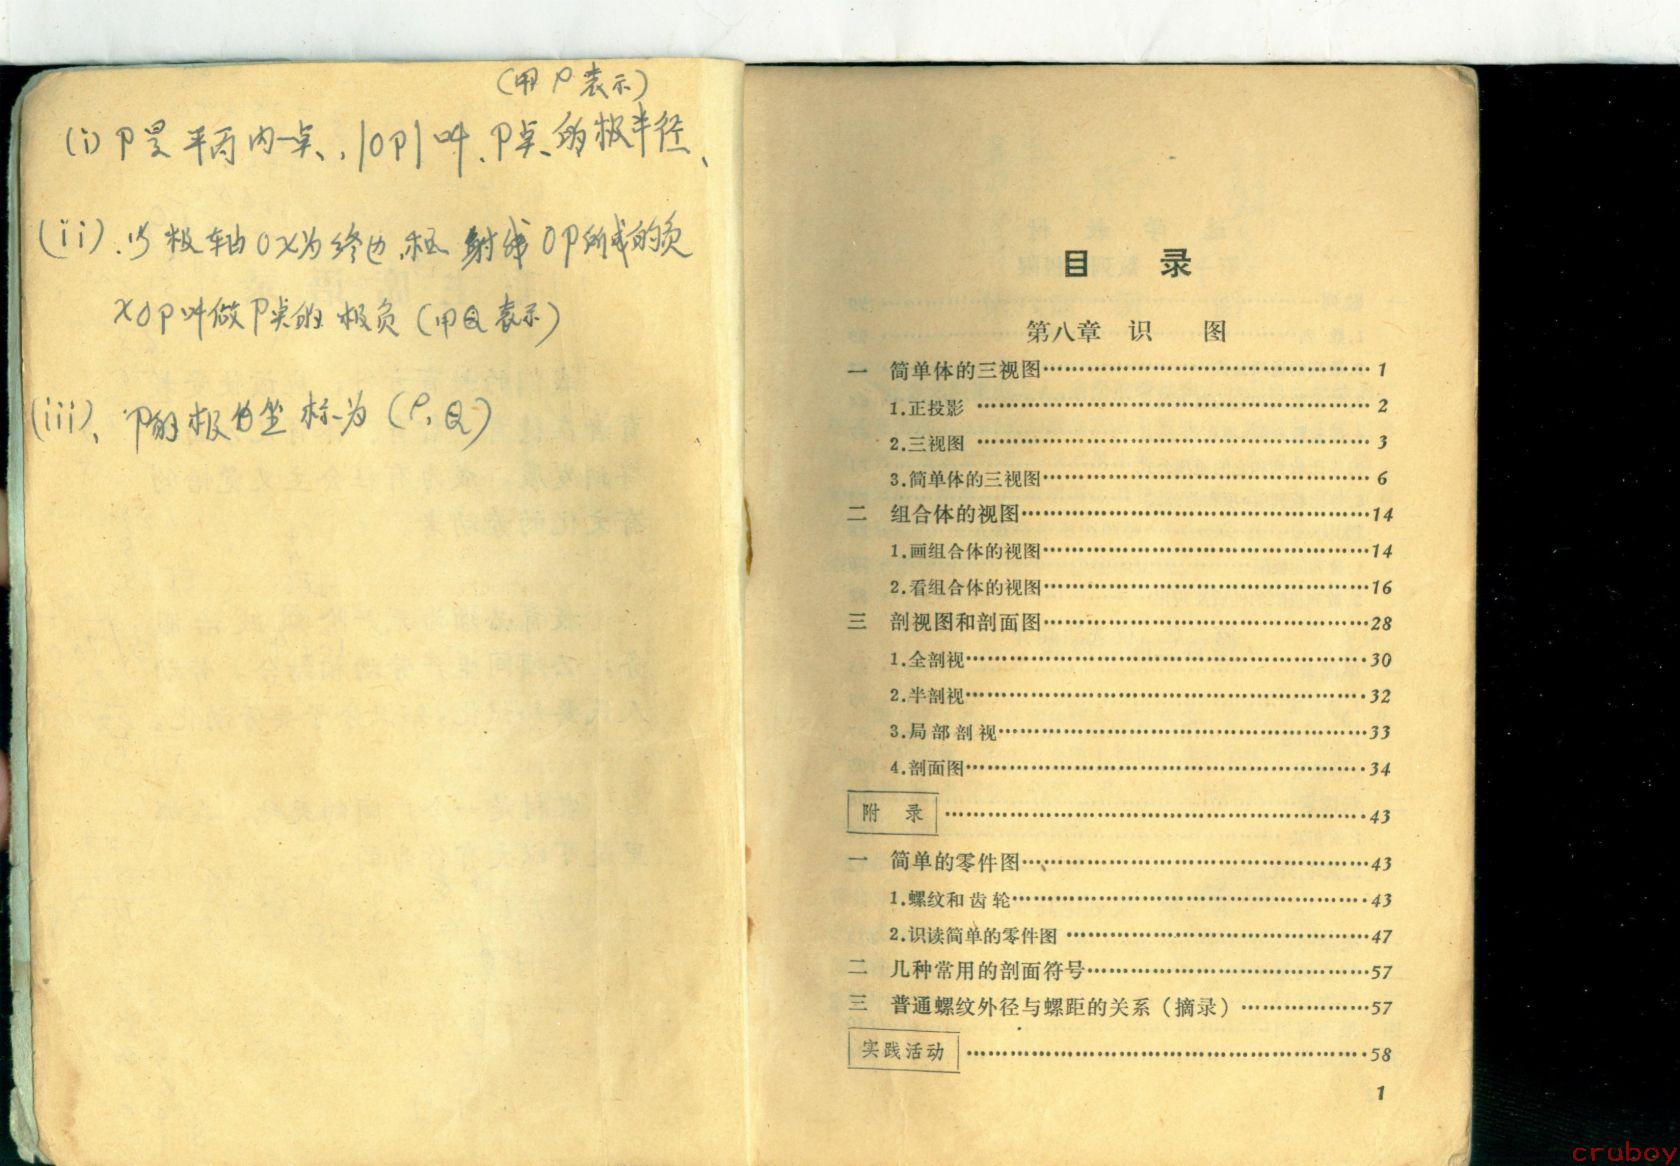 (用ρ表示)
(i) P是平面内一点,|OP|叫、P点的极半径、
(ii).以极轴OX为终边,和射线OP所成的角
XOP叫做P点的极角(用Q表示)
(iii)、P的极坐标为(ρ,Q)
目 录
第八章 识 图
一 简单体的三视图……1
1.正投影……2
2.三视图……3
3.简单体的三视图……6
二 组合体的视图……14
1.画组合体的视图……14
2.看组合体的视图……16
三 剖视图和剖面图……28
1.全剖视……30
2.半剖视……32
3.局部剖视……33
4.剖面图……34
附 录……43
一 简单的零件图……43
1.螺纹和齿轮……43
2.识读简单的零件图……47
二 几种常用的剖面符号……57
三 普通螺纹外径与螺距的关系(摘录)……57
实践活动……58
1
cruboy